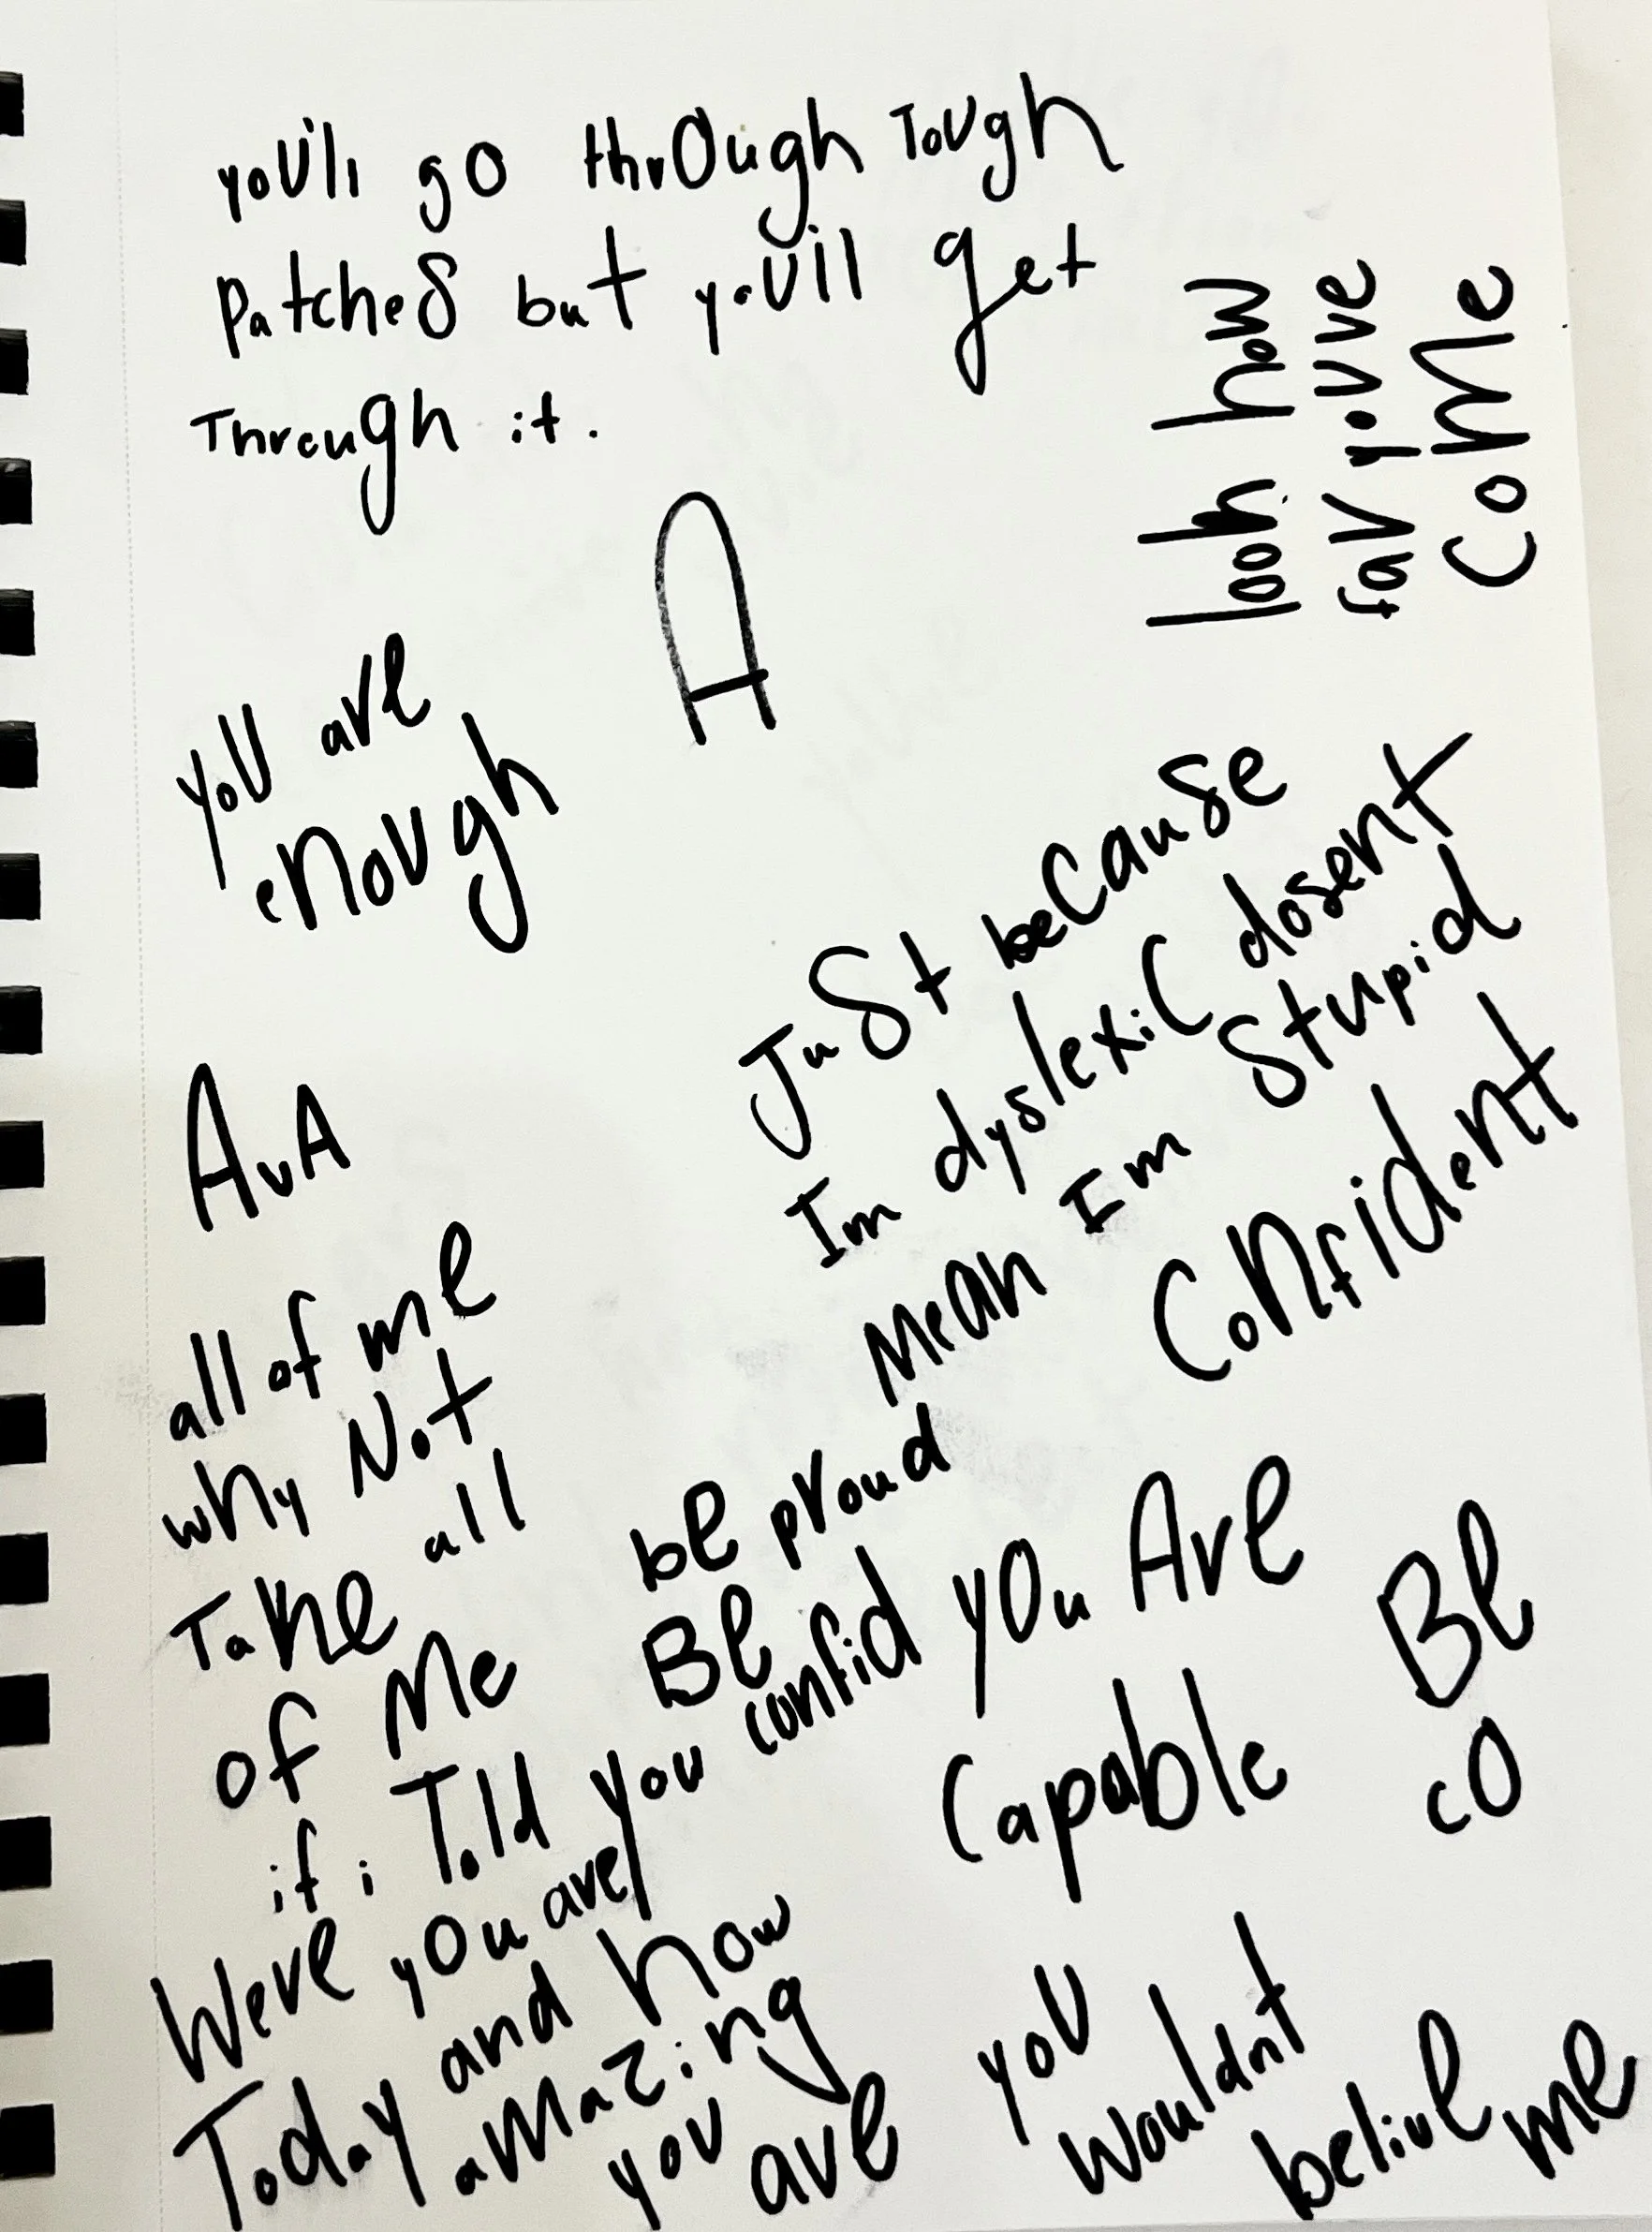 you'll go through Tough
patches but you'll get
Through it.
look how
far youve
come
A
you are
enough
Just because
Im dyslexic dosent
Mean Im Stupid
Confident
AvA
all of me
why Not
Take all
of Me
be proud
Be
confid
you Are
Capable
Be
co
if i Told you
Were you are
Today and how
amazing
you are
you
wouldnt
belive me